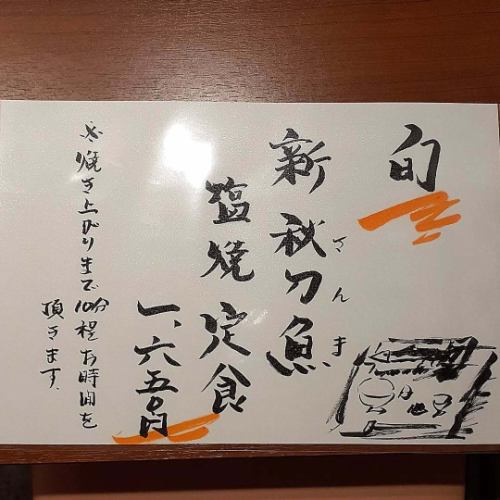 旬
新秋刀魚
さんま
塩焼定食
一、六五〇円
※焼き上がりまで10分程お時間を
頂きます.